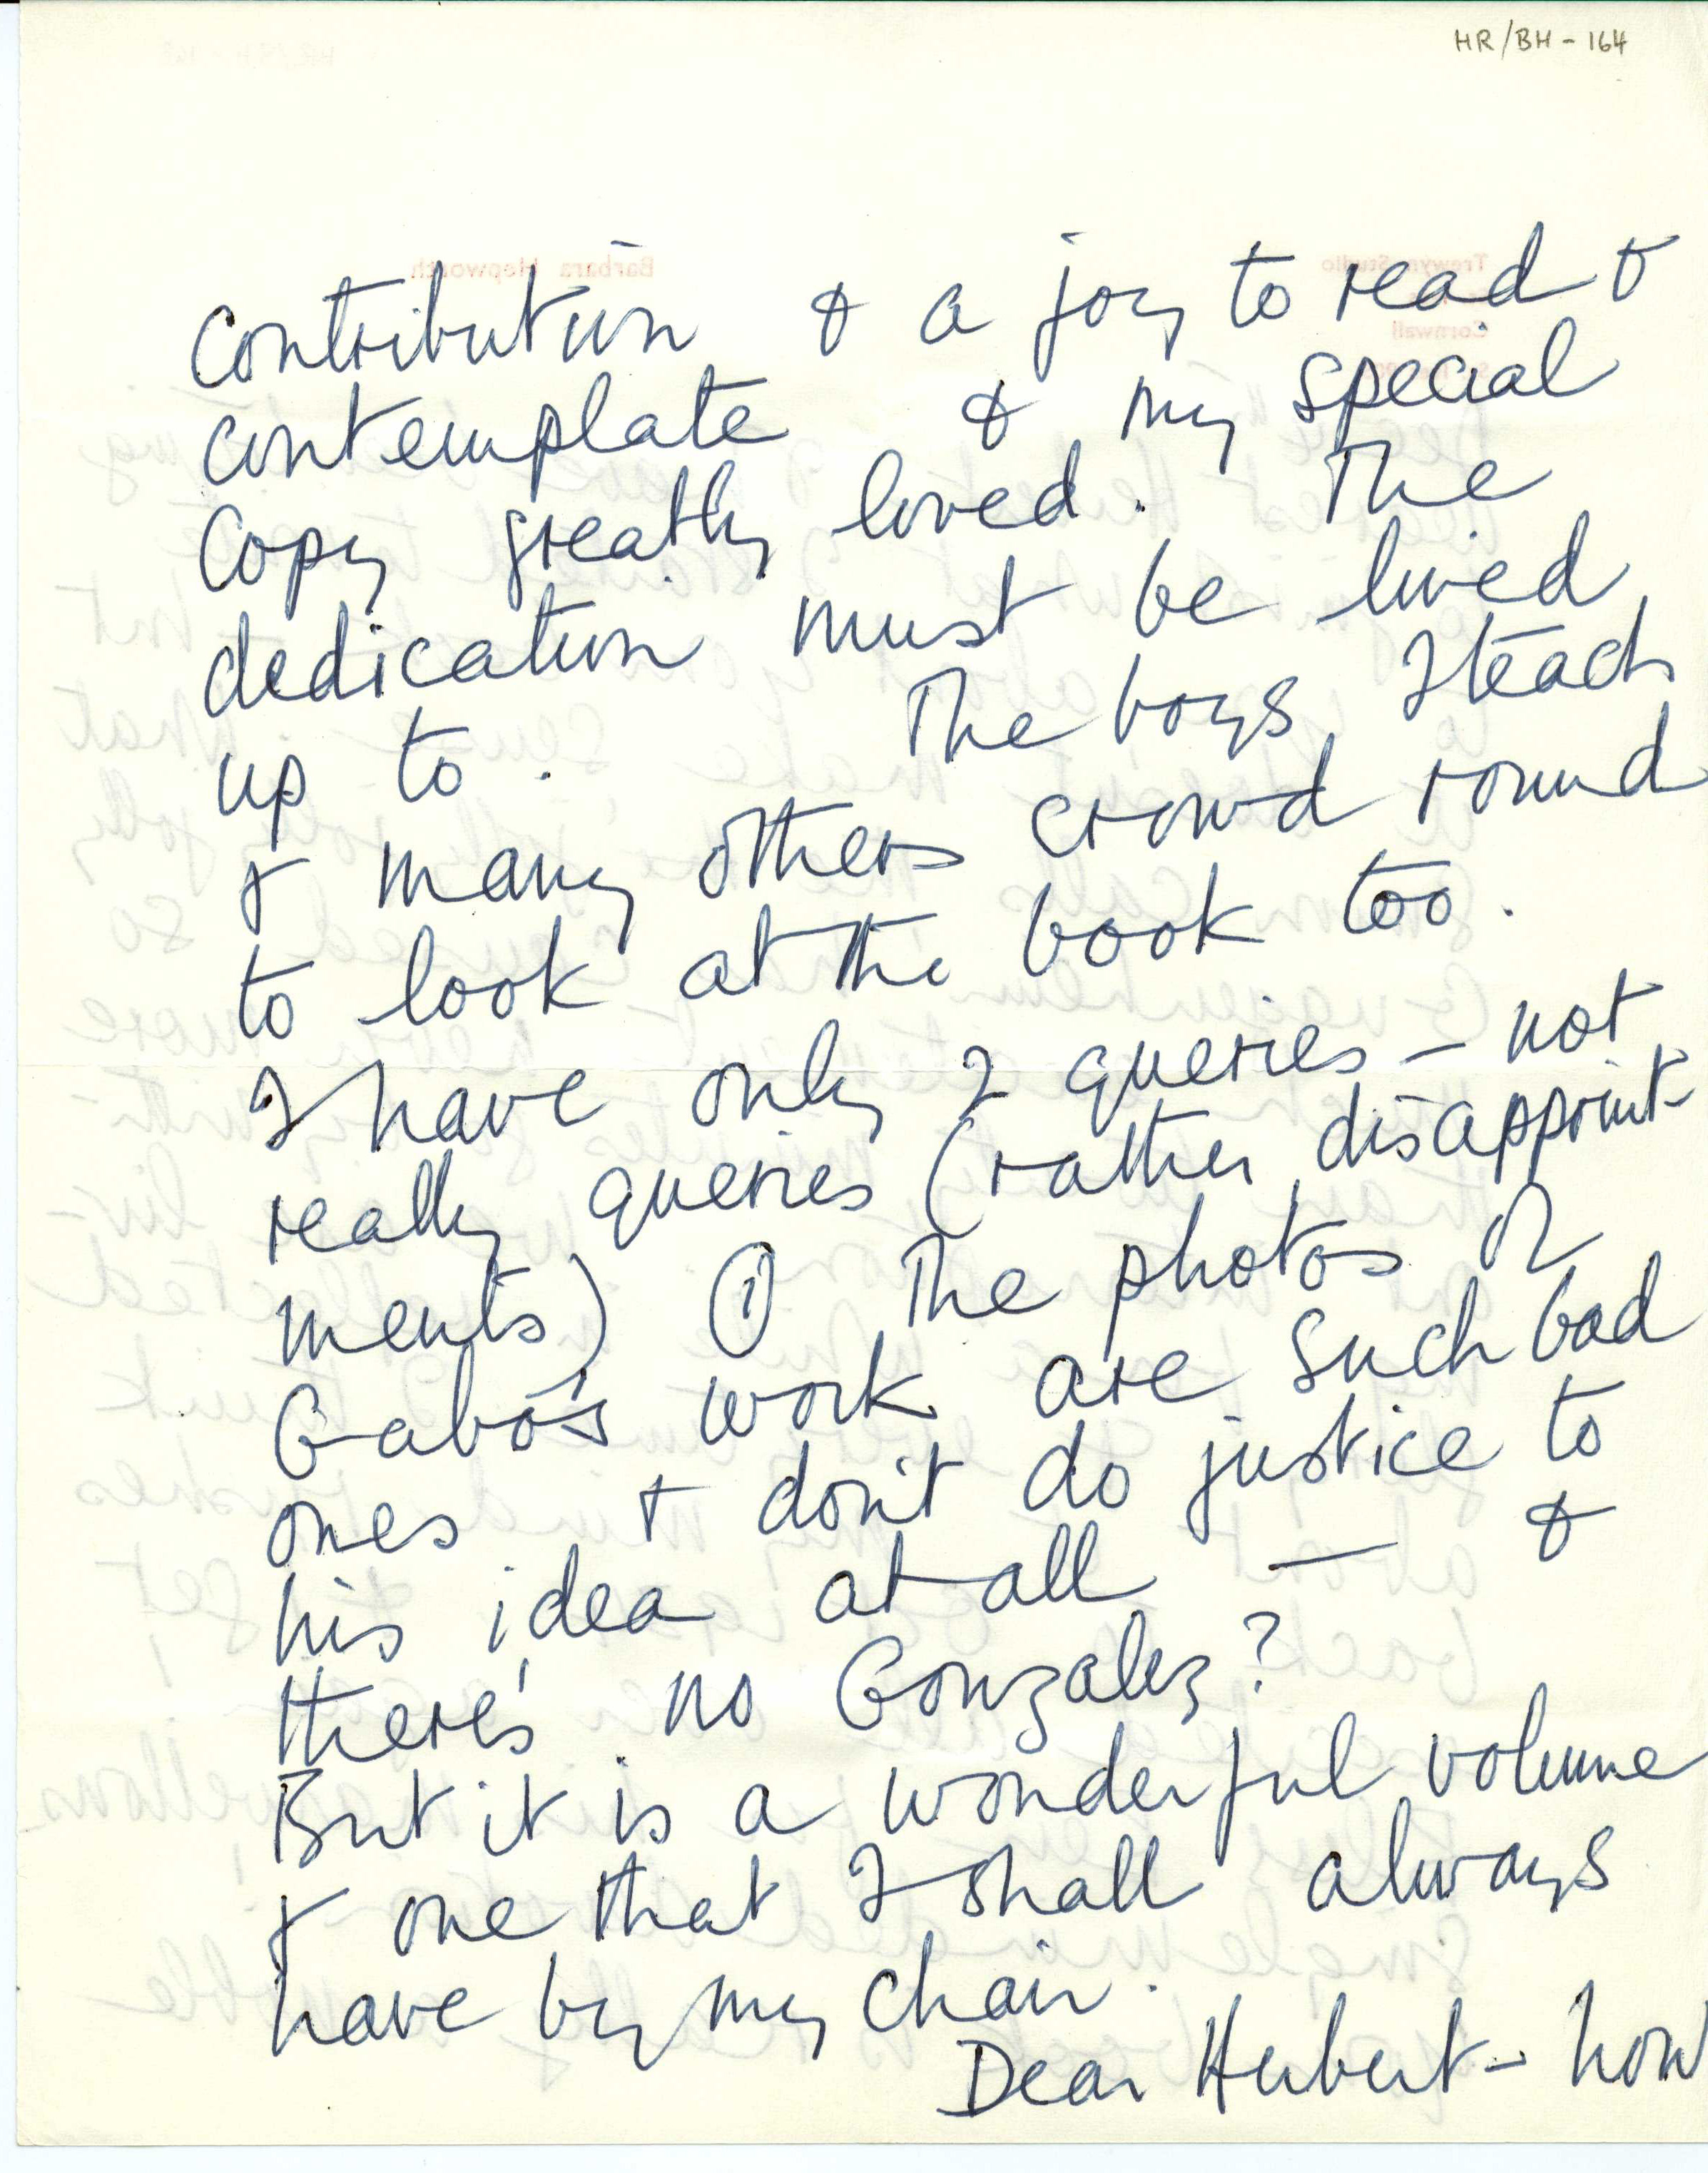 HR/BH - 164
Contribution & a joy to read &
contemplate & my special
copy greatly loved. The
dedication must be lived
up to. The boys I teach
& many others crowd round
to look at the book too.
I have only 2 queries - not
really queries (rather disappoint-
ments) ① The photos of
Gabo's work are such bad
ones & don't do justice to
his idea at all — &
there's no Gonzalez?
But it is a wonderful volume
& one that I shall always
have by my chair.
Dear Herbert - how